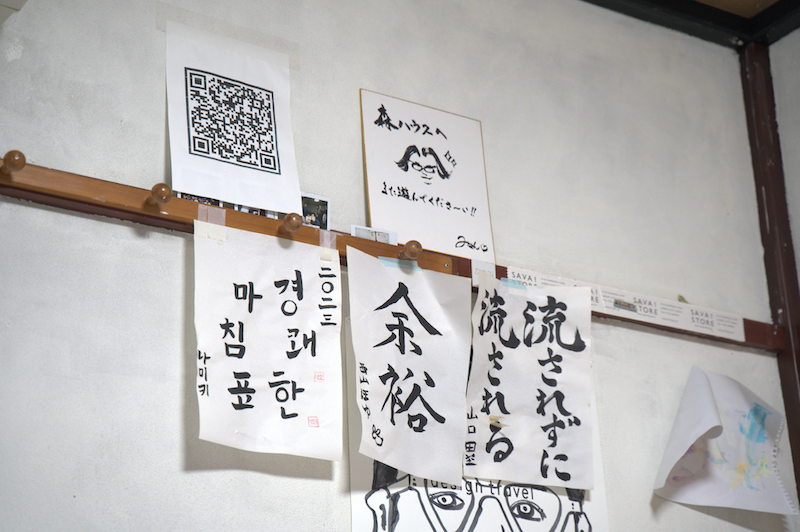 森ハウスへ
また遊んでくださ〜い!!
二〇二三
경쾌한
마침표
나미키
余裕
流されずに
流される
山口
SAVA!
STORE
SAVA!
STORE
design travel